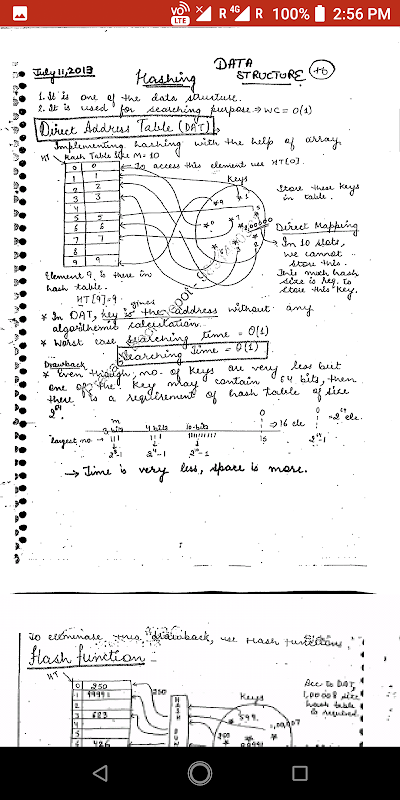 VO LTE R 4G R 100% 2:56 PM
July 11, 2013
Hashing
DATA STRUCTURE
1. It is one of the data structure.
2. It is used for searching purpose → WC = O(1)
Direct Address Table (DAT)
Implementing hashing with the help of array.
HT Hash Table Size M = 10
0 0
1 1
2 2
3 3
4
5 5
6 6
7 7
8
9 9
To access this element use HT[0].
Keys
Store these keys in table.
Direct Mapping
In 10 slots, we cannot store this.
This much hash size is req. to store this key.
Element 9 is there in hash table.
HT[9]=9
* In DAT, key is the address without any
algorithmic calculation.
* Worst case searching time = O(1)
Searching Time = O(1)
Drawback
* Even though, no. of keys are very less but
one of the key may contain 64 bits, then
there is a requirement of hash table of size
2^64
m
3 bits 4 bits 10-bits
largest no. → 111 111 1111111111 0 ⇒ 16 ele 0
2^3-1 2^4-1 2^n-1 15
→ Time is very less, space is more.
To eliminate this drawback, use Hash function.
Hash function
HT
0 250
1 99991
2
3 683
4
5
6 426
250
HASH FUN
Keys
599
Acc to DAT, 1,00008 size hash table is required.